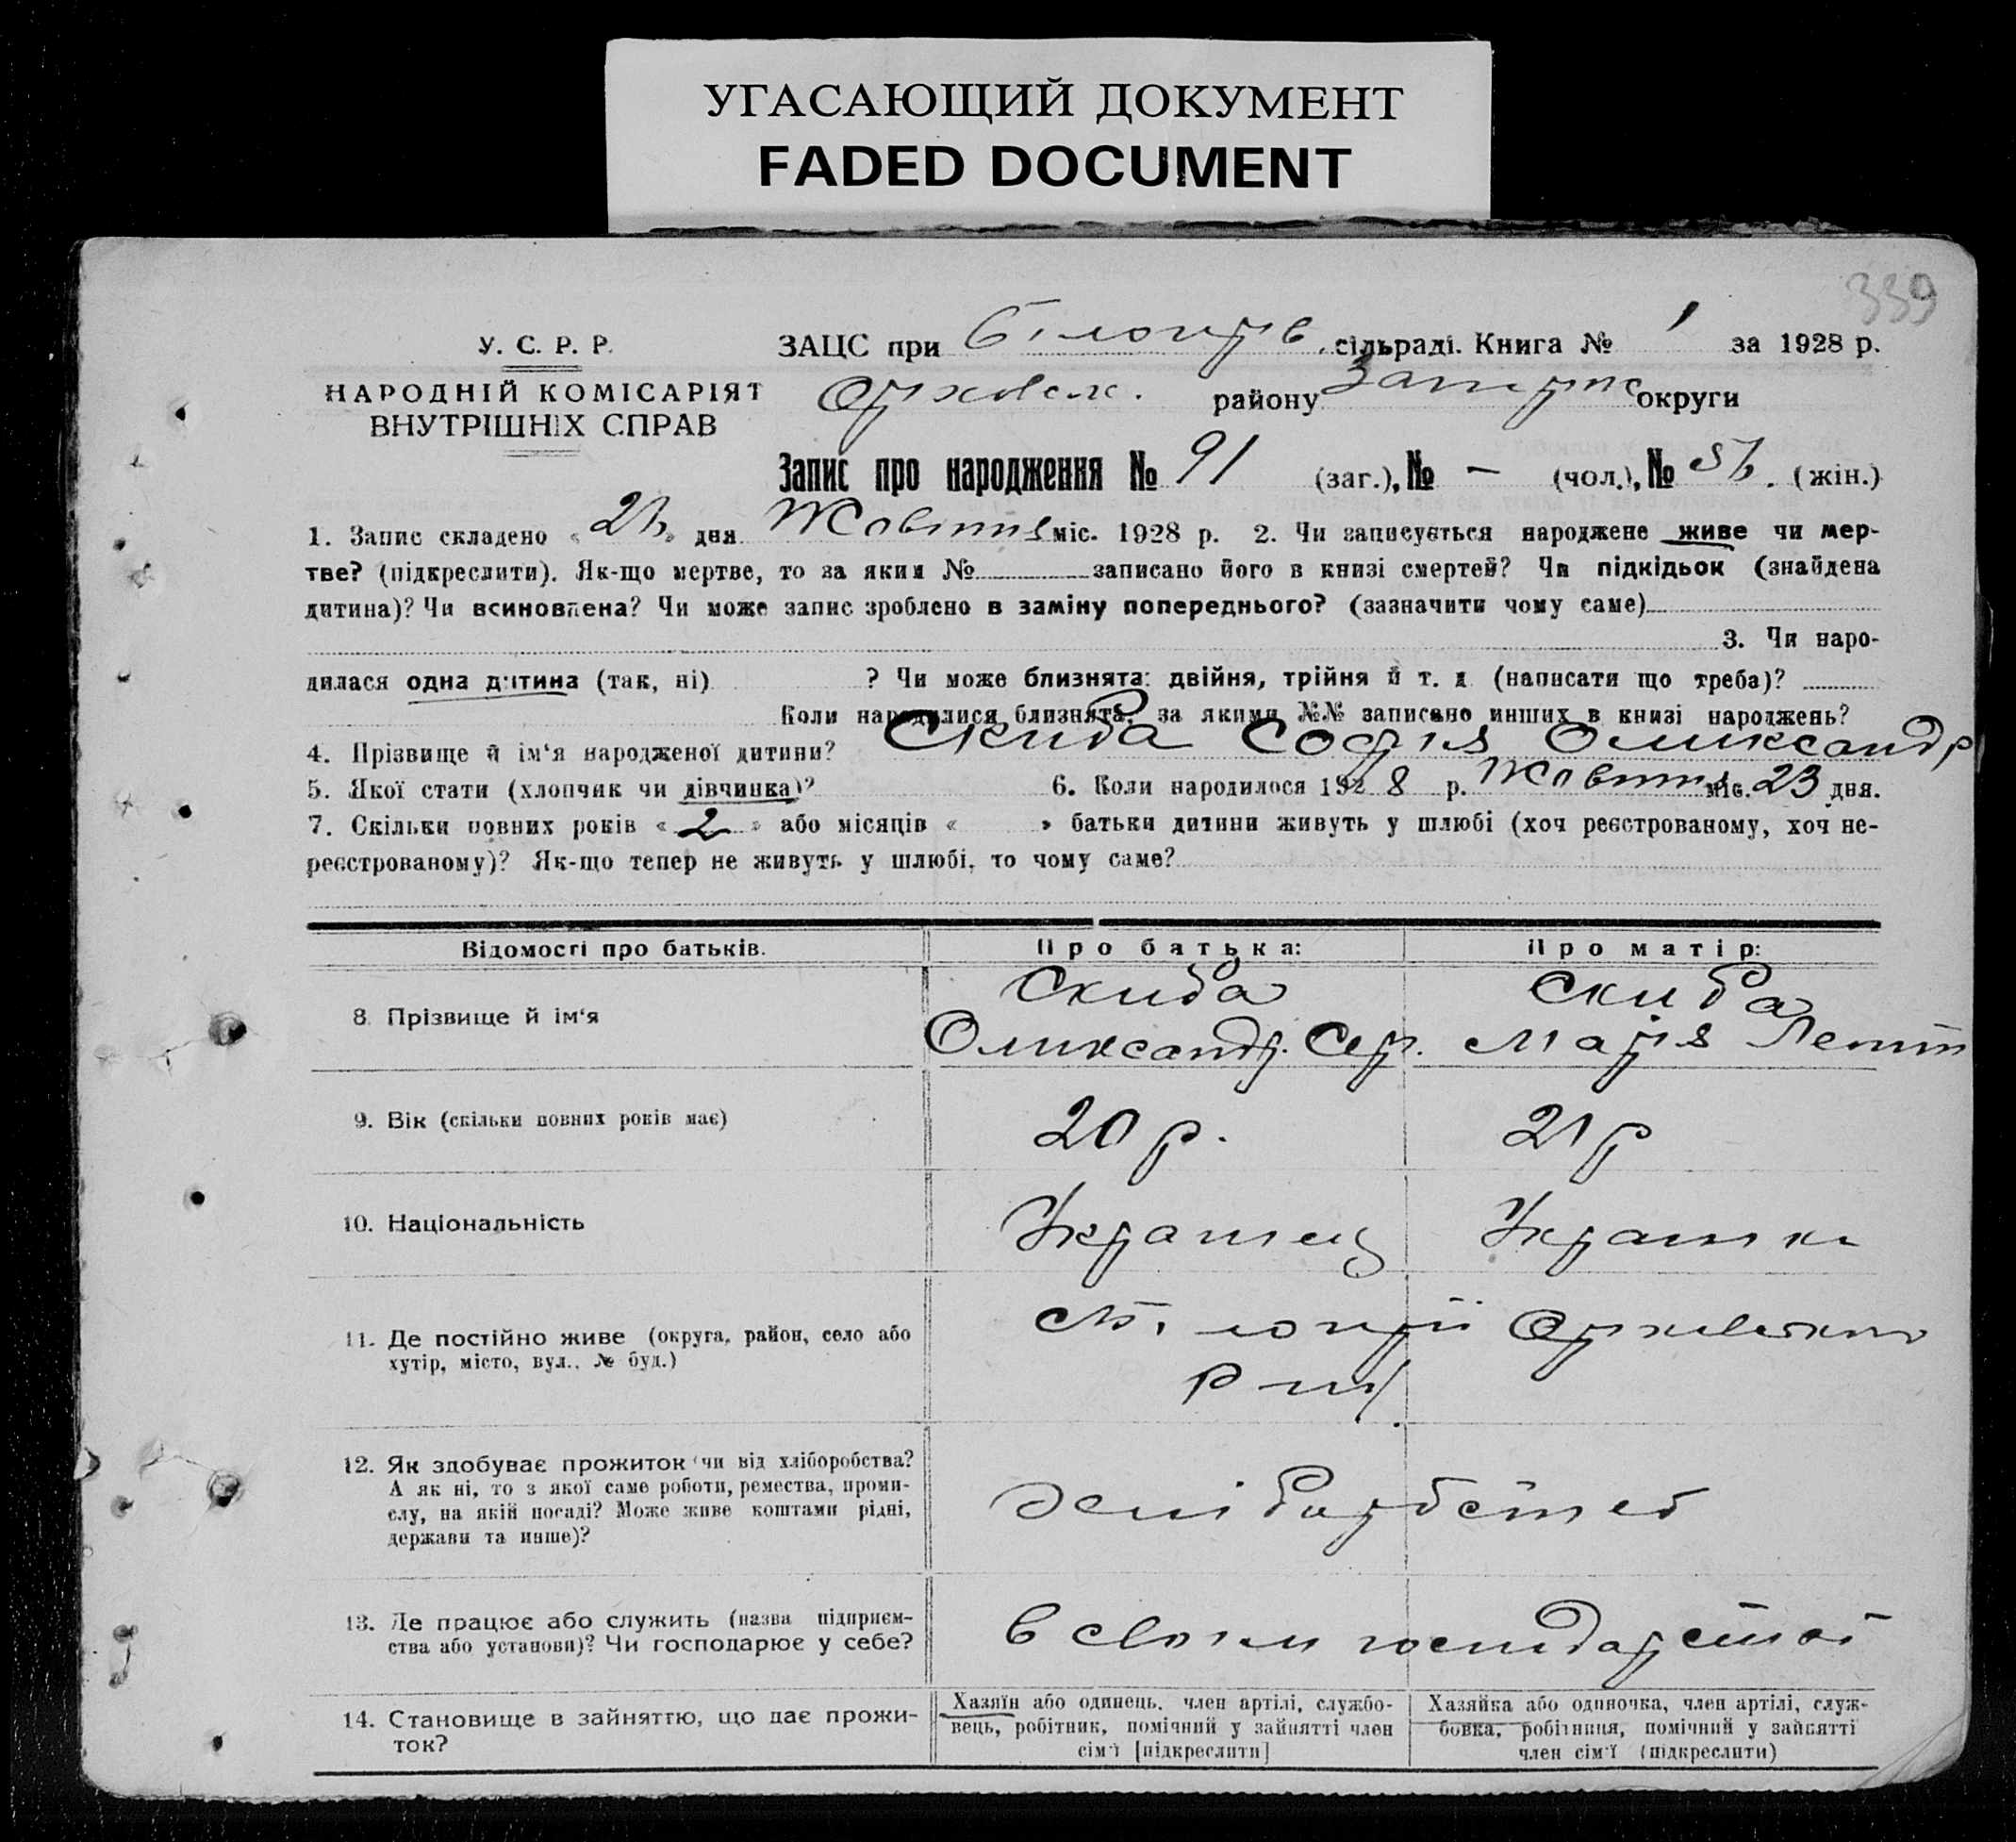 УГАСАЮЩИЙ ДОКУМЕНТ
FADED DOCUMENT
339
У. С. Р. Р.
НАРОДНІЙ КОМІСАРІЯТ
ВНУТРІШНІХ СПРАВ
ЗАЦС при сільраді. Книга № 1 за 1928 р.
району округи
Запис про народження № 91 (заг.), № – (чол.), № (жін.)
1. Запис складено « » дня Жовтня міс. 1928 р. 2. Чи записується народжене живе чи мер-
тве? (підкреслити). Як-що мертве, то за яким № записано його в книзі смертей? Чи підкідьок (знайдена
дитина)? Чи всиновлена? Чи може запис зроблено в заміну попереднього? (зазначити чому саме)
3. Чи наро-
дилася одна дитина (так, ні) ? Чи може близнята: двійня, трійня й т. д (написати що треба)?
Коли народилися близнята, за якими №№ записано инших в книзі народжень?
4. Прізвище й ім‘я народженої дитини? Скиба Софія Оликсандр
5. Якої статі (хлопчик чи дівчинка)? 6. Коли народилося 1928 р. Жовтня міс. 23 дня.
7. Скільки повних років « 2 » або місяців « » батьки дитини живуть у шлюбі (хоч реєстрованому, хоч не-
реєстрованому)? Як-що тепер не живуть у шлюбі, то чому саме?
Відомості про батьків. Про батька: Про матір:
8. Прізвище й ім‘я Скиба Оликсандр. Сер. Скиба Марія
9. Вік (скільки повних років має) 20 р. 21 р
10. Національність Украінец Украінка
11. Де постійно живе (округа, район, село або
хутір, місто, вул., № буд.)
12. Як здобуває прожиток (чи від хліборобства?
А як ні, то з якої саме роботи, ремества, проми-
слу, на якій посаді? Може живе коштами рідні,
держави та инше)?
13. Де працює або служить (назва підприєм-
ства або установи)? Чи господарює у себе?
в своім
14. Становище в зайняттю, що дає прожи-
ток?
Хазяїн або одинець, член артілі, службо-
вець, робітник, помічний у зайнятті член
сім‘ї [підкреслити]
Хазяйка або одиночка, член артілі, служ-
бовка, робітниця, помічний у зайнятті
член сім‘ї (підкреслити)